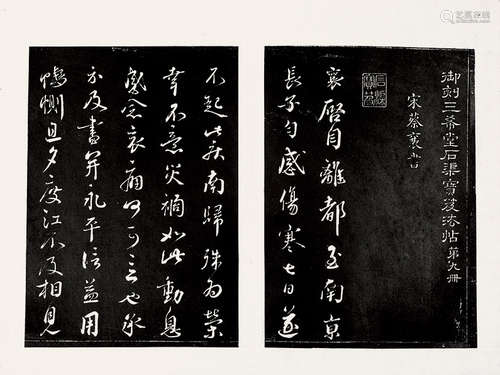 御刻三希堂石渠寶笈法帖第九冊
宋蔡襄書
襄啓自離都至南京
長子勻感傷寒七日遂
不起此疾南歸殊為榮
幸不意災禍如此動息
感念哀痛何可言也承
示及書并永平信益用
悽惻旦夕度江不及相見